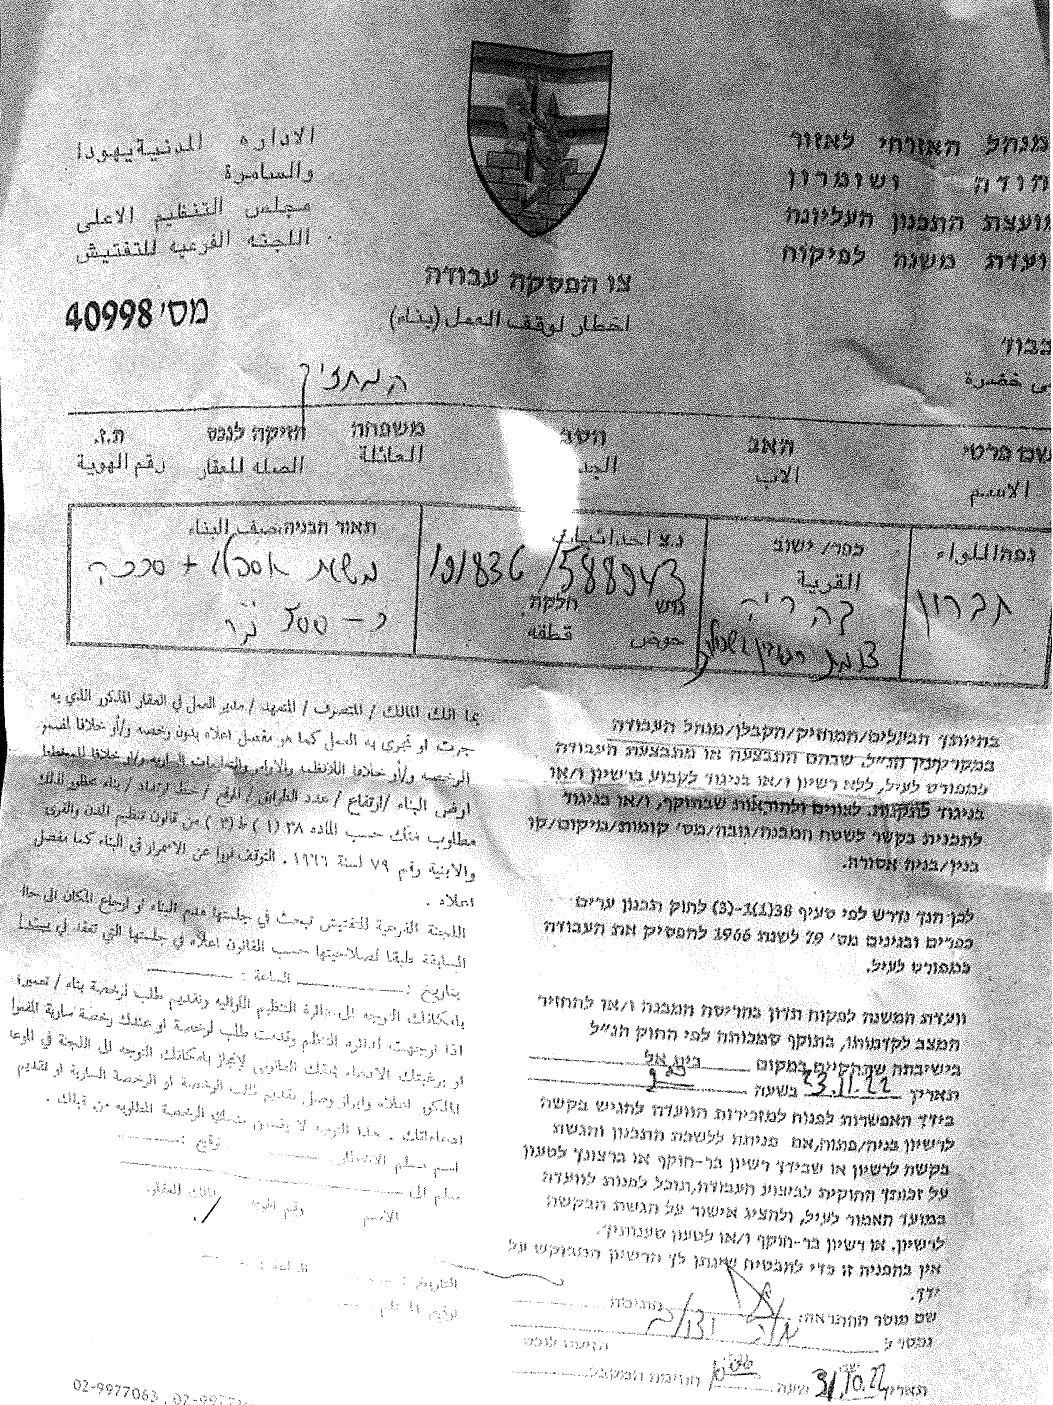 מנהל האזרחי לאזור
הודה ושומרון
ועצת התכנון העליונה
ועדת משנה לפיקוח
الاداره المدنية يهودا
والسامرة
مجلس التنظيم الاعلى
اللجنه الفرعيه للتفتيش
צו הפסקה עבודה
اخطار لوقف العمل (بناء)
מס' 40998
המחזיק
שם פרטי האב הסב משפחה הזיקה לנכס ת.ז.
الاسم الاب الجد العائلة الصله للعقار رقم الهوية
נפה اللواء
חברון
כפר/ ישוב
القرية
נ.צ احداثيات
191836/588943
גוש חלקה
حوض قطعه
תאור הבניה صف البناء
משטח אספלט + סככה
כ- 500 מ"ר
בהיותך הבעלים/המחזיק/הקבלן/מנהל העבודה
במקרקעין הנ"ל, שבהם התבצעה או מתבצעת העבודה
כמפורט לעיל, ללא רשיון ו/או בניגוד לקבוע ברשיון ו/או
בניגוד לתקנות, לצווים ולהוראות שבתוקף, ו/או בניגוד
לתכנית בקשר לשטח המבנה/גובה/מס' קומות/מיקום/קו
בנין/בניה אסורה.
לכן הנך נדרש לפי סעיף 38(1)1-(3) לחוק תכנון ערים
כפרים ובנינים מס' 79 לשנת 1966 להפסיק את העבודה
כמפורט לעיל.
וועדת המשנה לפקוח תדון בהריסת המבנה ו/או להחזיר
המצב לקדמותו, בתוקף סמכותה לפי החוק הנ"ל
בישיבתה שתתקיים במקום בית אל
תאריך 23.11.22 בשעה
בידך האפשרות לפנות למזכירות הוועדה להגיש בקשה
לרשיון בניה/פתוח, אם פניתה ללשכת התכנון והגשת
בקשה לרשיון או שבידך רשיון בר-תוקף או ברצונך לטעון
על זכותך החוקית לביצוע העבודה, תוכל לפנות לוועדה
במועד האמור לעיל, ולהציג אישור על הגשת הבקשה
לרשיון, או רשיון בר-תוקף ו/או לטעון טענותיך.
אין בהפניה זו כדי להבטיח שינתן לך הרשיון המבוקש על
ידך.
שם מוסר ההתראה: חתימה
נמסר ל הזיקה לנכס
תאריך 31.10.22 שעה חתימת המקבל
بما انك المالك / المتصرف / المتعهد / مدير العمل في العقار المذكور الذي به
جرت او تجري به العمل كما هو مفصل اعلاه بدون رخصه و/أو خلافا
الرخيصه و/أو خلافا للانظمه والاوامر والتعليمات الساريه و/أو خلافا للمخطط
ارض البناء /ارتفاع / عدد الطوابق / الموقع / خط ارتداد / بناء محظور لذلك
مطلوب منك حسب الماده ٣٨ (١) ط (٣) من قانون تنظيم المدن والقرى
والابنية رقم ٧٩ لسنة ١٩٦٦. التوقف فورا عن الاستمرار في البناء كما مفصل
اعلاه .
اللجنة الفرعية للتفتيش تبحث في جلستها هدم البناء او ارجاع المكان الى حالته
السابقة طبقا لصلاحيتها حسب القانون اعلاه في جلستها التي تعقد في
بتاريخ : الساعة :
بامكانك التوجه الى دائرة التنظيم اللوائيه وتقديم طلب لرخصة بناء / تعمير
اذا توجهت لدائره التنظيم وقدمت طلب لرخصة او عندك رخصة سارية المفعول
او برغبتك الادعاء بحقك القانوني لانجاز بامكانك التوجه الى اللجنة في الموعد
المذكور اعلاه وابراز وصل بتقديم طلب الرخصة او الرخصة السارية او تقديم
ادعاءاتك . هذا التوجه لا يضمن منحك الرخصة المطلوبه من قبلك .
اسم مسلم الاخطار توقيع :
سلم الى
الاسم رقم الهويه مالك العقار
التاريخ : الساعة :
02-9977063 ,